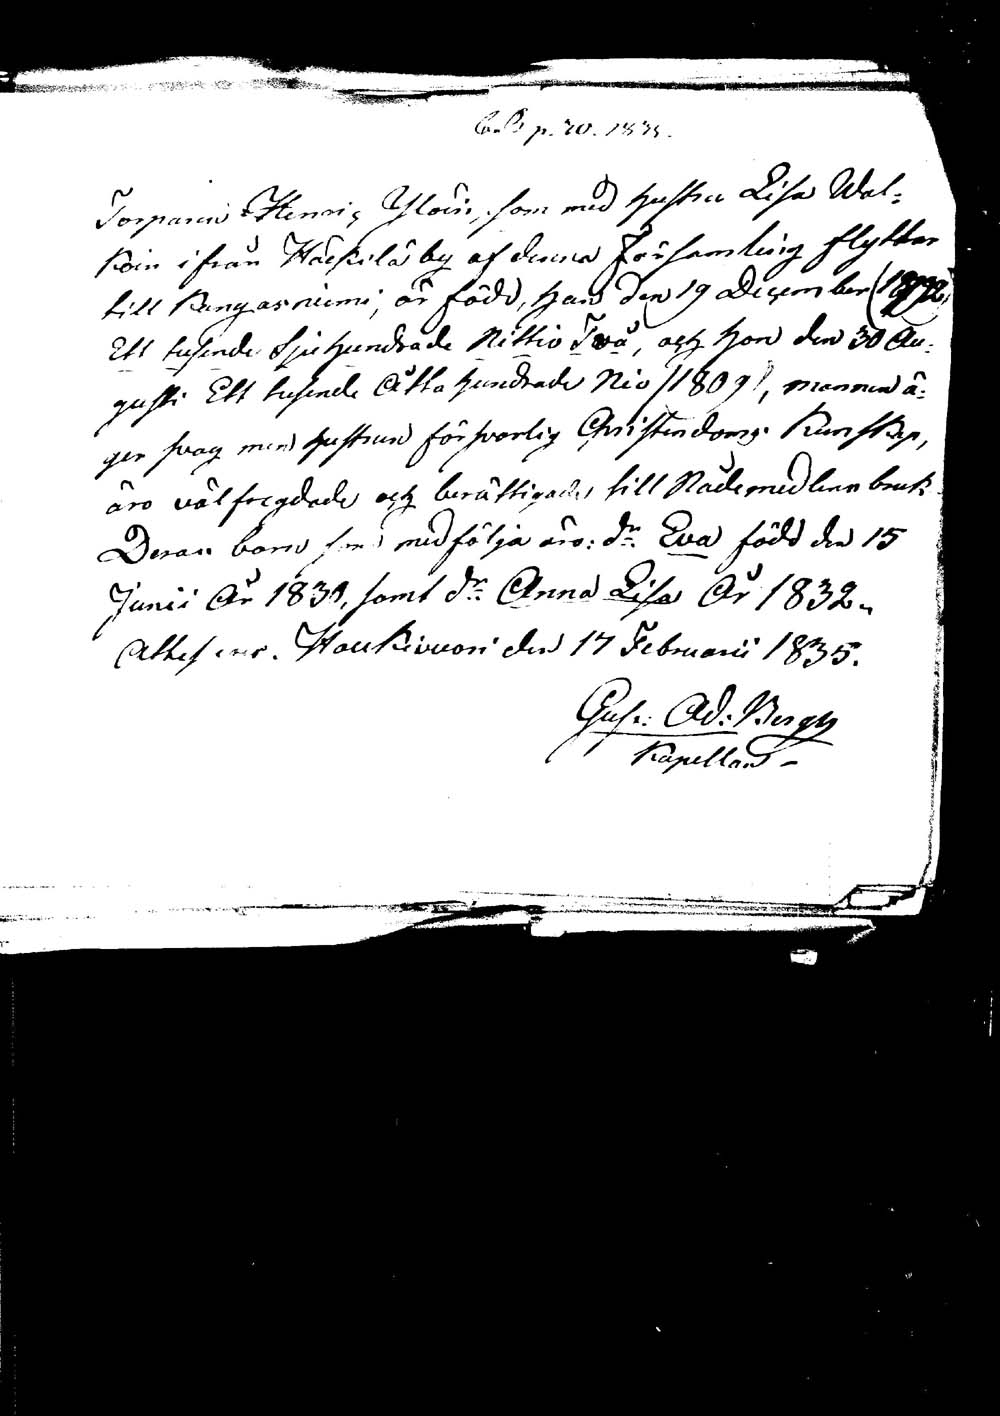 p. 20. 1835.
Torparen Henric Ylöin, som med hustru Lisa Wal=
koin ifrån Häkkilä by af denna Församling flyttar
till Kangasniemi, är född, han den 19 December (1792)
Ett tusende Sjuhundrade Nittio Två, och hon den 30 Au=
gusti Ett tusende Åttahundrade Nio (1809), mannen ä=
ger svag men hustrun försvarlig Christendoms Kunskap,
äro välfregdade och berättigade till Nådemedlens bruk.
Deras barn som medfölja äro: dr Eva född den 15
Junii År 1830, samt dr Anna Lisa År 1832.
Attesteras. Haukivuori den 17 Februarii 1835.
Gust: Ad: Bergh
Kapellan